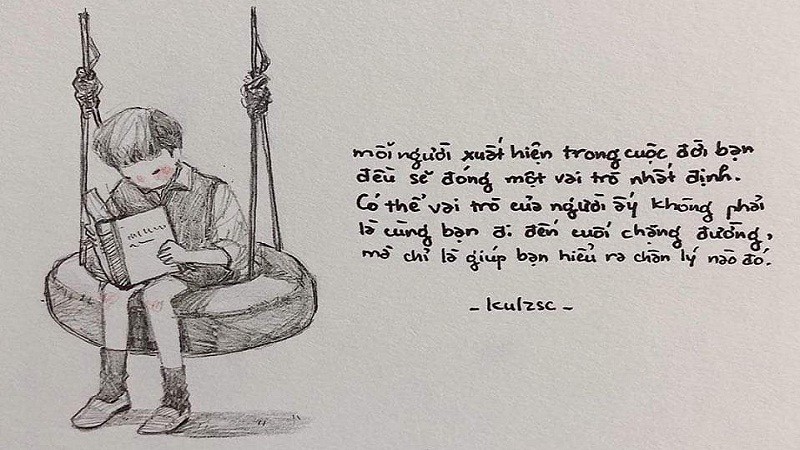 mỗi người xuất hiện trong cuộc đời bạn
đều sẽ đóng một vai trò nhất định.
Có thể vai trò của người ấy không phải
là cùng bạn đi đến cuối chặng đường,
mà chỉ là giúp bạn hiểu ra chân lý nào đó.
- kulzsc -